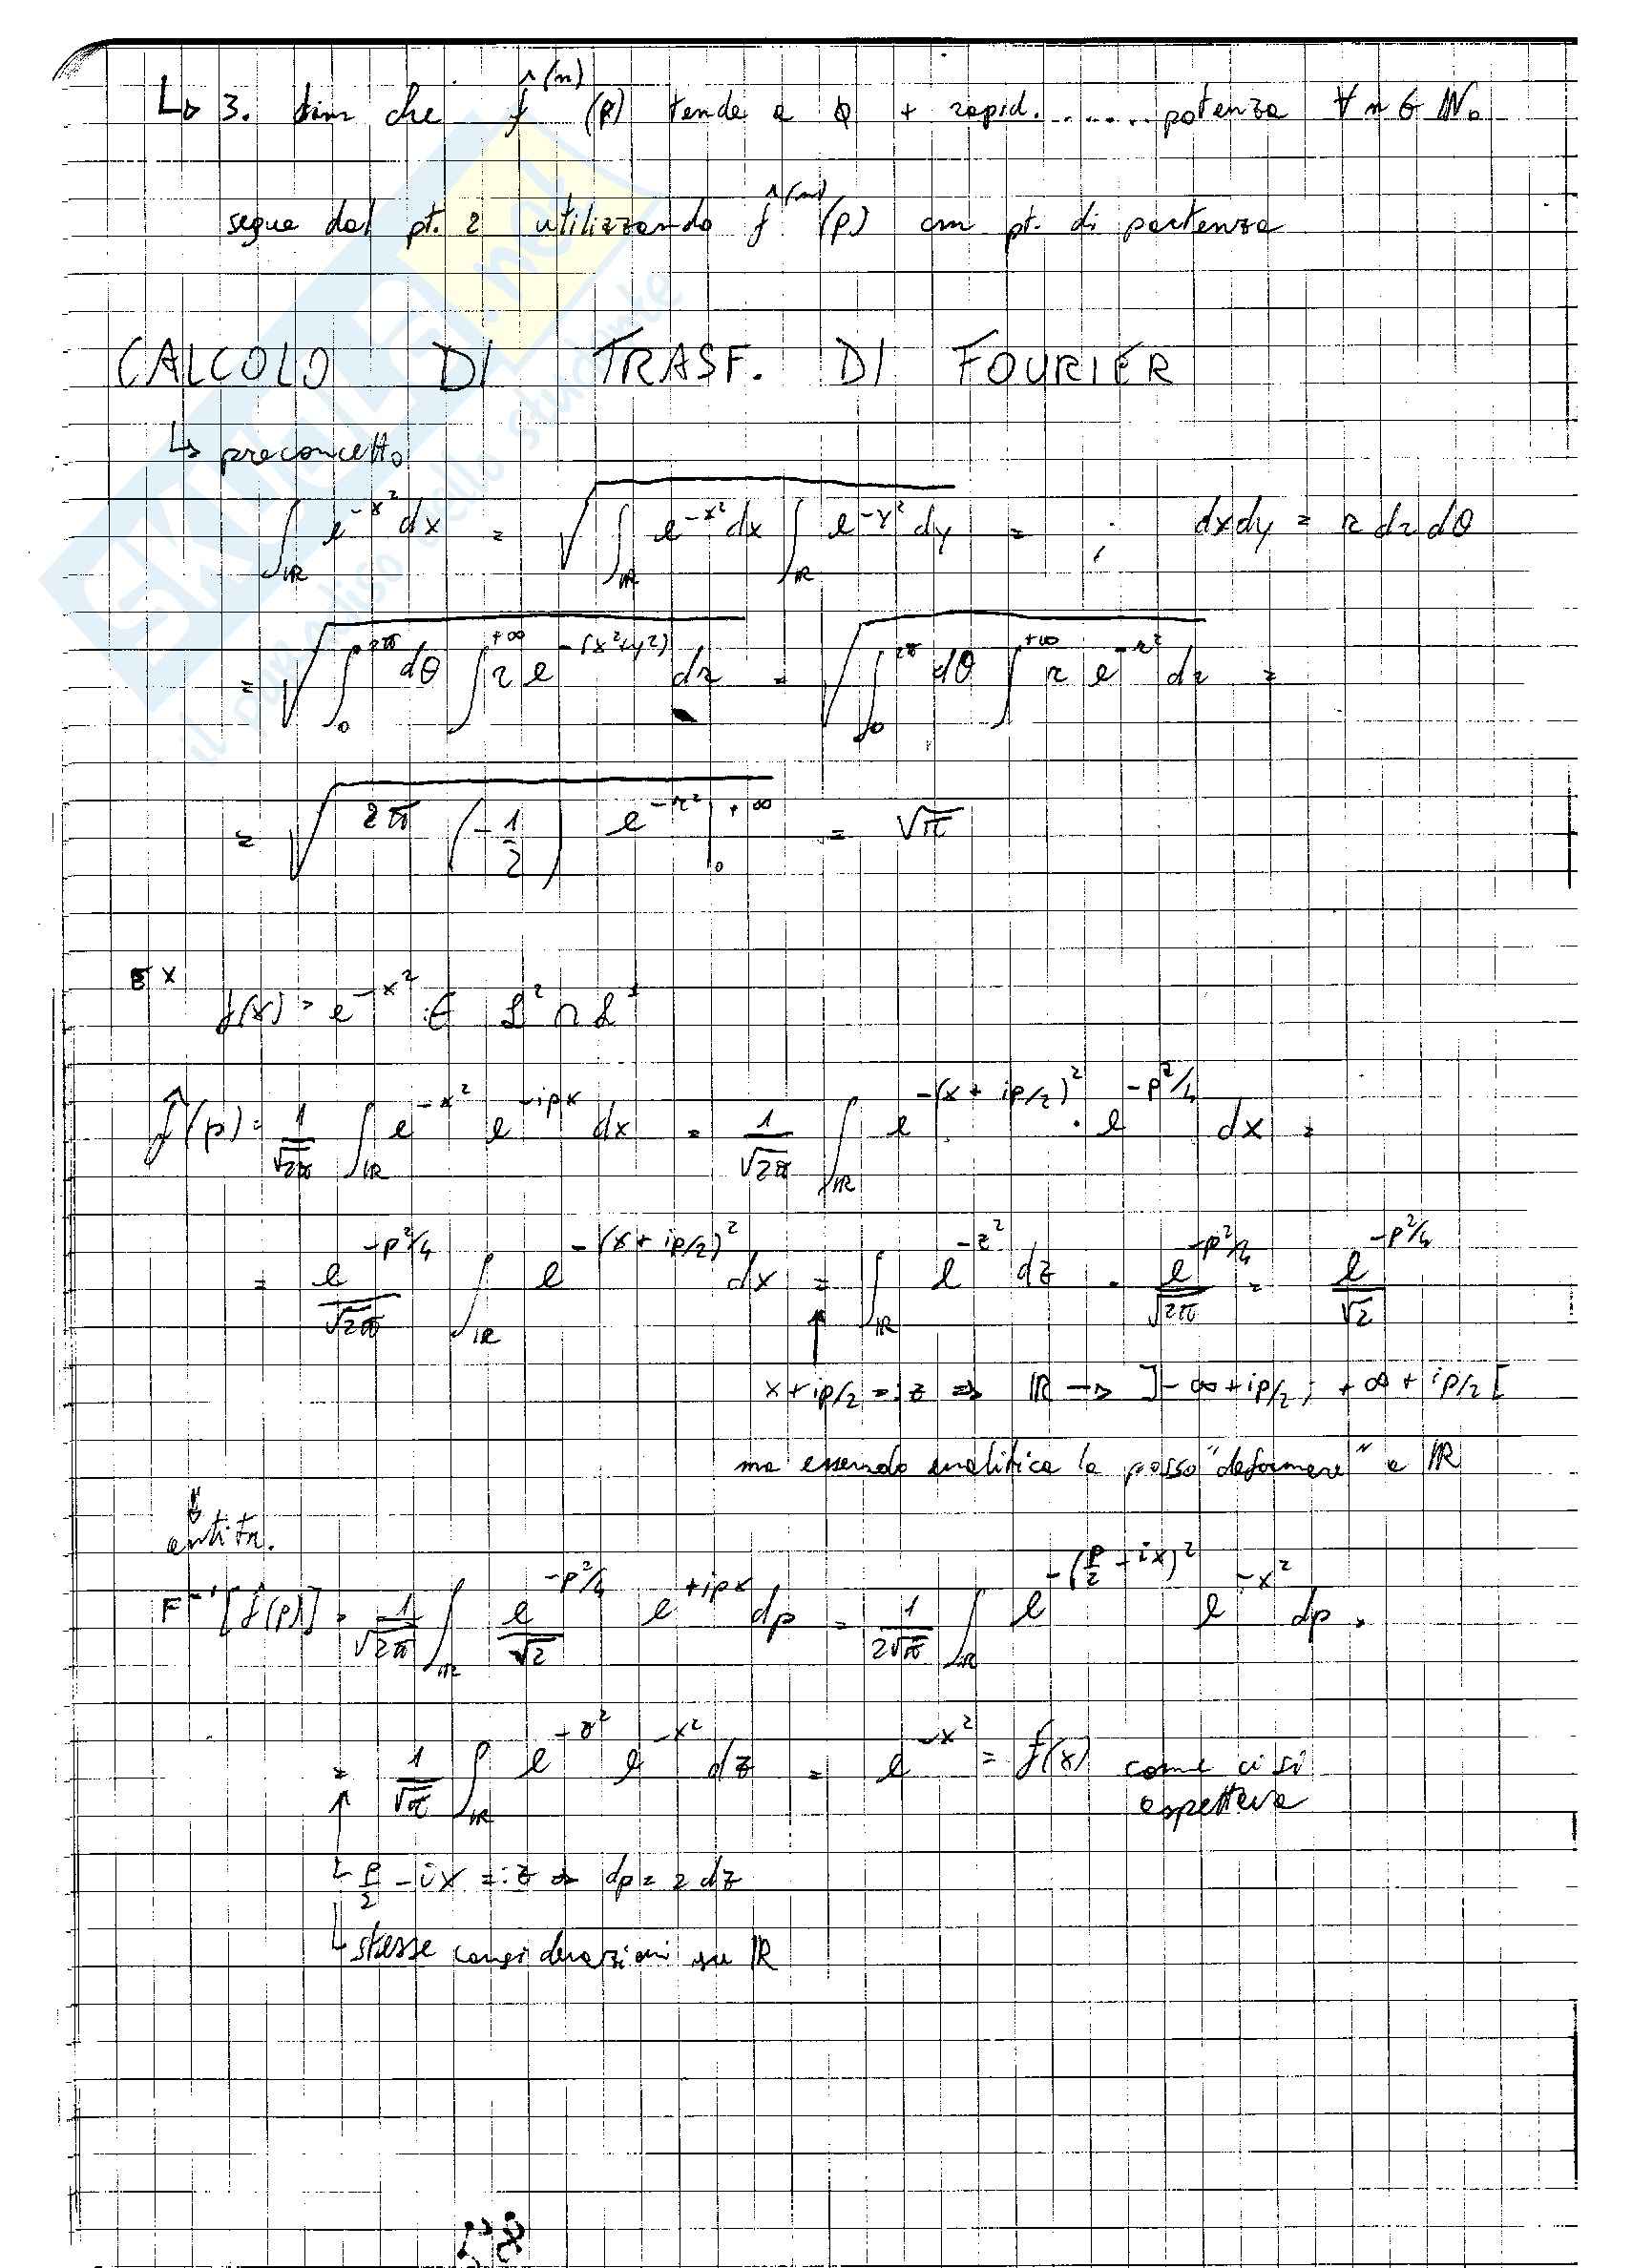 ↳ 3. dim che f̂⁽ⁿ⁾(p) tende a 0 + rapid. ....... potenza ∀ n ∈ ℕ₀
segue dal pt. 2 utilizzando f̂⁽ⁿ⁾(p) come pt. di partenza
CALCOLO DI TRASF. DI FOURIER
↳ preconcetto
∫_ℝ e^{-x²} dx = √(∫_ℝ e^{-x²} dx ∫_ℝ e^{-y²} dy) = ; dxdy = r dr dθ
= √(∫_0^{2π} dθ ∫^{+∞} r e^{-(x²+y²)} dr) = √(∫_0^{2π} dθ ∫^{+∞} r e^{-r²} dr) =
= √(2π (-1/2) e^{-r²} |_0^{+∞}) = √π
EX
f(x) = e^{-x²} ∈ L² ∩ L¹
f̂(p) = 1/√2π ∫_ℝ e^{-x²} e^{-ipx} dx = 1/√2π ∫_ℝ e^{-(x+ip/2)²} · e^{-p²/4} dx =
= e^{-p²/4}/√2π ∫_ℝ e^{-(x+ip/2)²} dx = ∫_ℝ e^{-z²} dz · e^{-p²/4}/√2π = e^{-p²/4}/√2
x+ip/2 =: z ⇒ ℝ → ]-∞+ip/2; +∞+ip/2[
ma essendo analitica la posso "deformare" a ℝ
antitr.
F⁻¹[f̂(p)] = 1/√2π ∫_ℝ e^{-p²/4}/√2 e^{+ipx} dp = 1/2√π ∫_ℝ e^{-(p/2-ix)²} e^{-x²} dp =
= 1/√π ∫_ℝ e^{-z²} e^{-x²} dz = e^{-x²} = f(x) come ci si
aspettava
↳ p/2 - ix =: z ⇒ dp = 2 dz
↳ stesse considerazioni su ℝ
SKUOLA.net
il paradiso dello studente